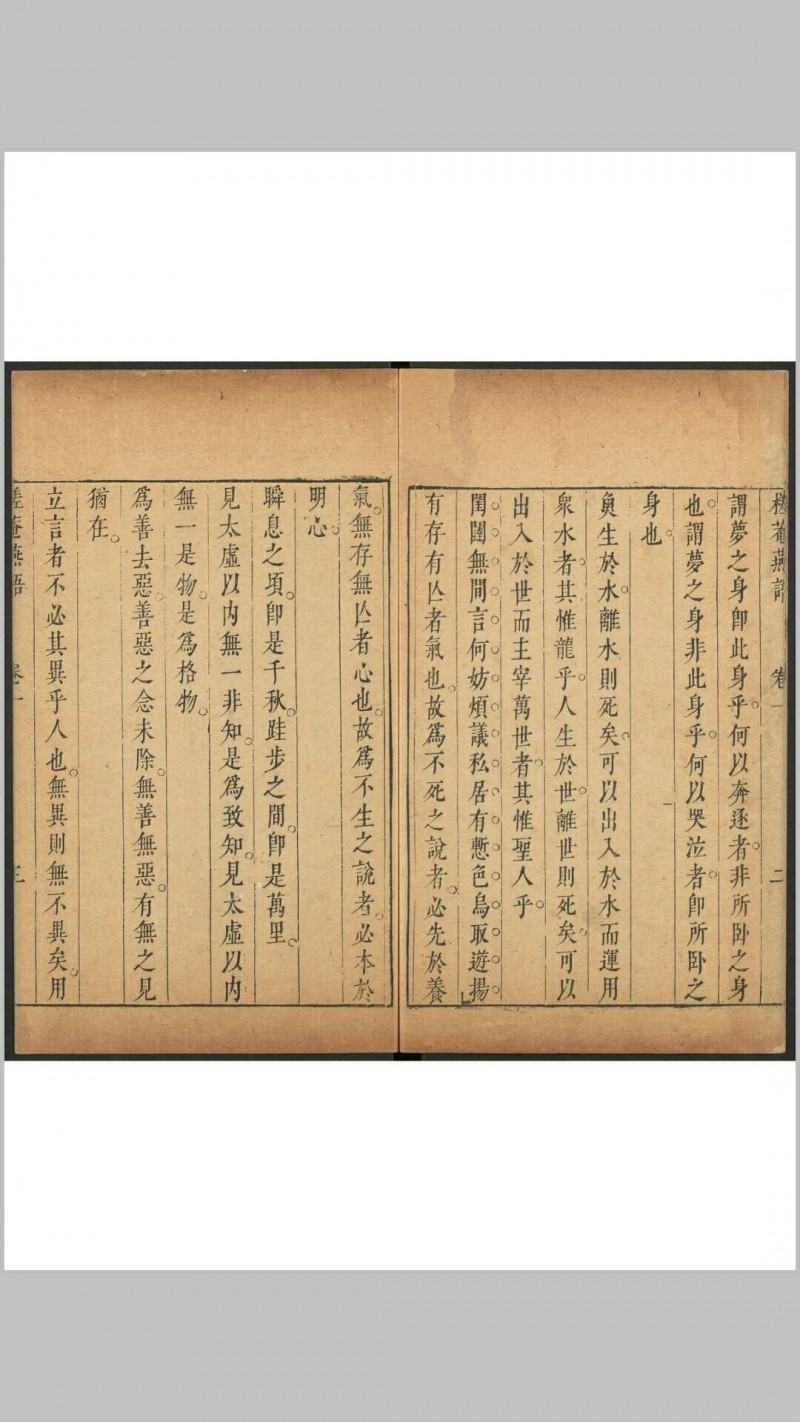 菴燕語 卷一 二
謂夢之身卽此身乎。何以奔逐者。非所卧之身
也。謂夢之身非此身乎。何以哭泣者。卽所卧之
身也。
魚生於水。離水則死矣。可以出入於水而運用
衆水者。其惟龍乎。人生於世。離世則死矣。可以
出入於世而主宰萬世者。其惟聖人乎。
閨闥無間言。何妨煩議。私居有慙色。烏取遊揚。
有存有亾者氣也。故爲不死之說者。必先於養
氣。無存無亾者心也。故爲不生之說者。必本於
明心。
瞬息之頃。卽是千秋。跬步之間。卽是萬里。
見太虛以內無一非知。是爲致知。見太虛以內
無一是物。是爲格物。
爲善去惡。善惡之念未除。無善無惡。有無之見
猶在。
立言者不必其異乎人也。無異則無不異矣。用
菴燕語 卷一 三